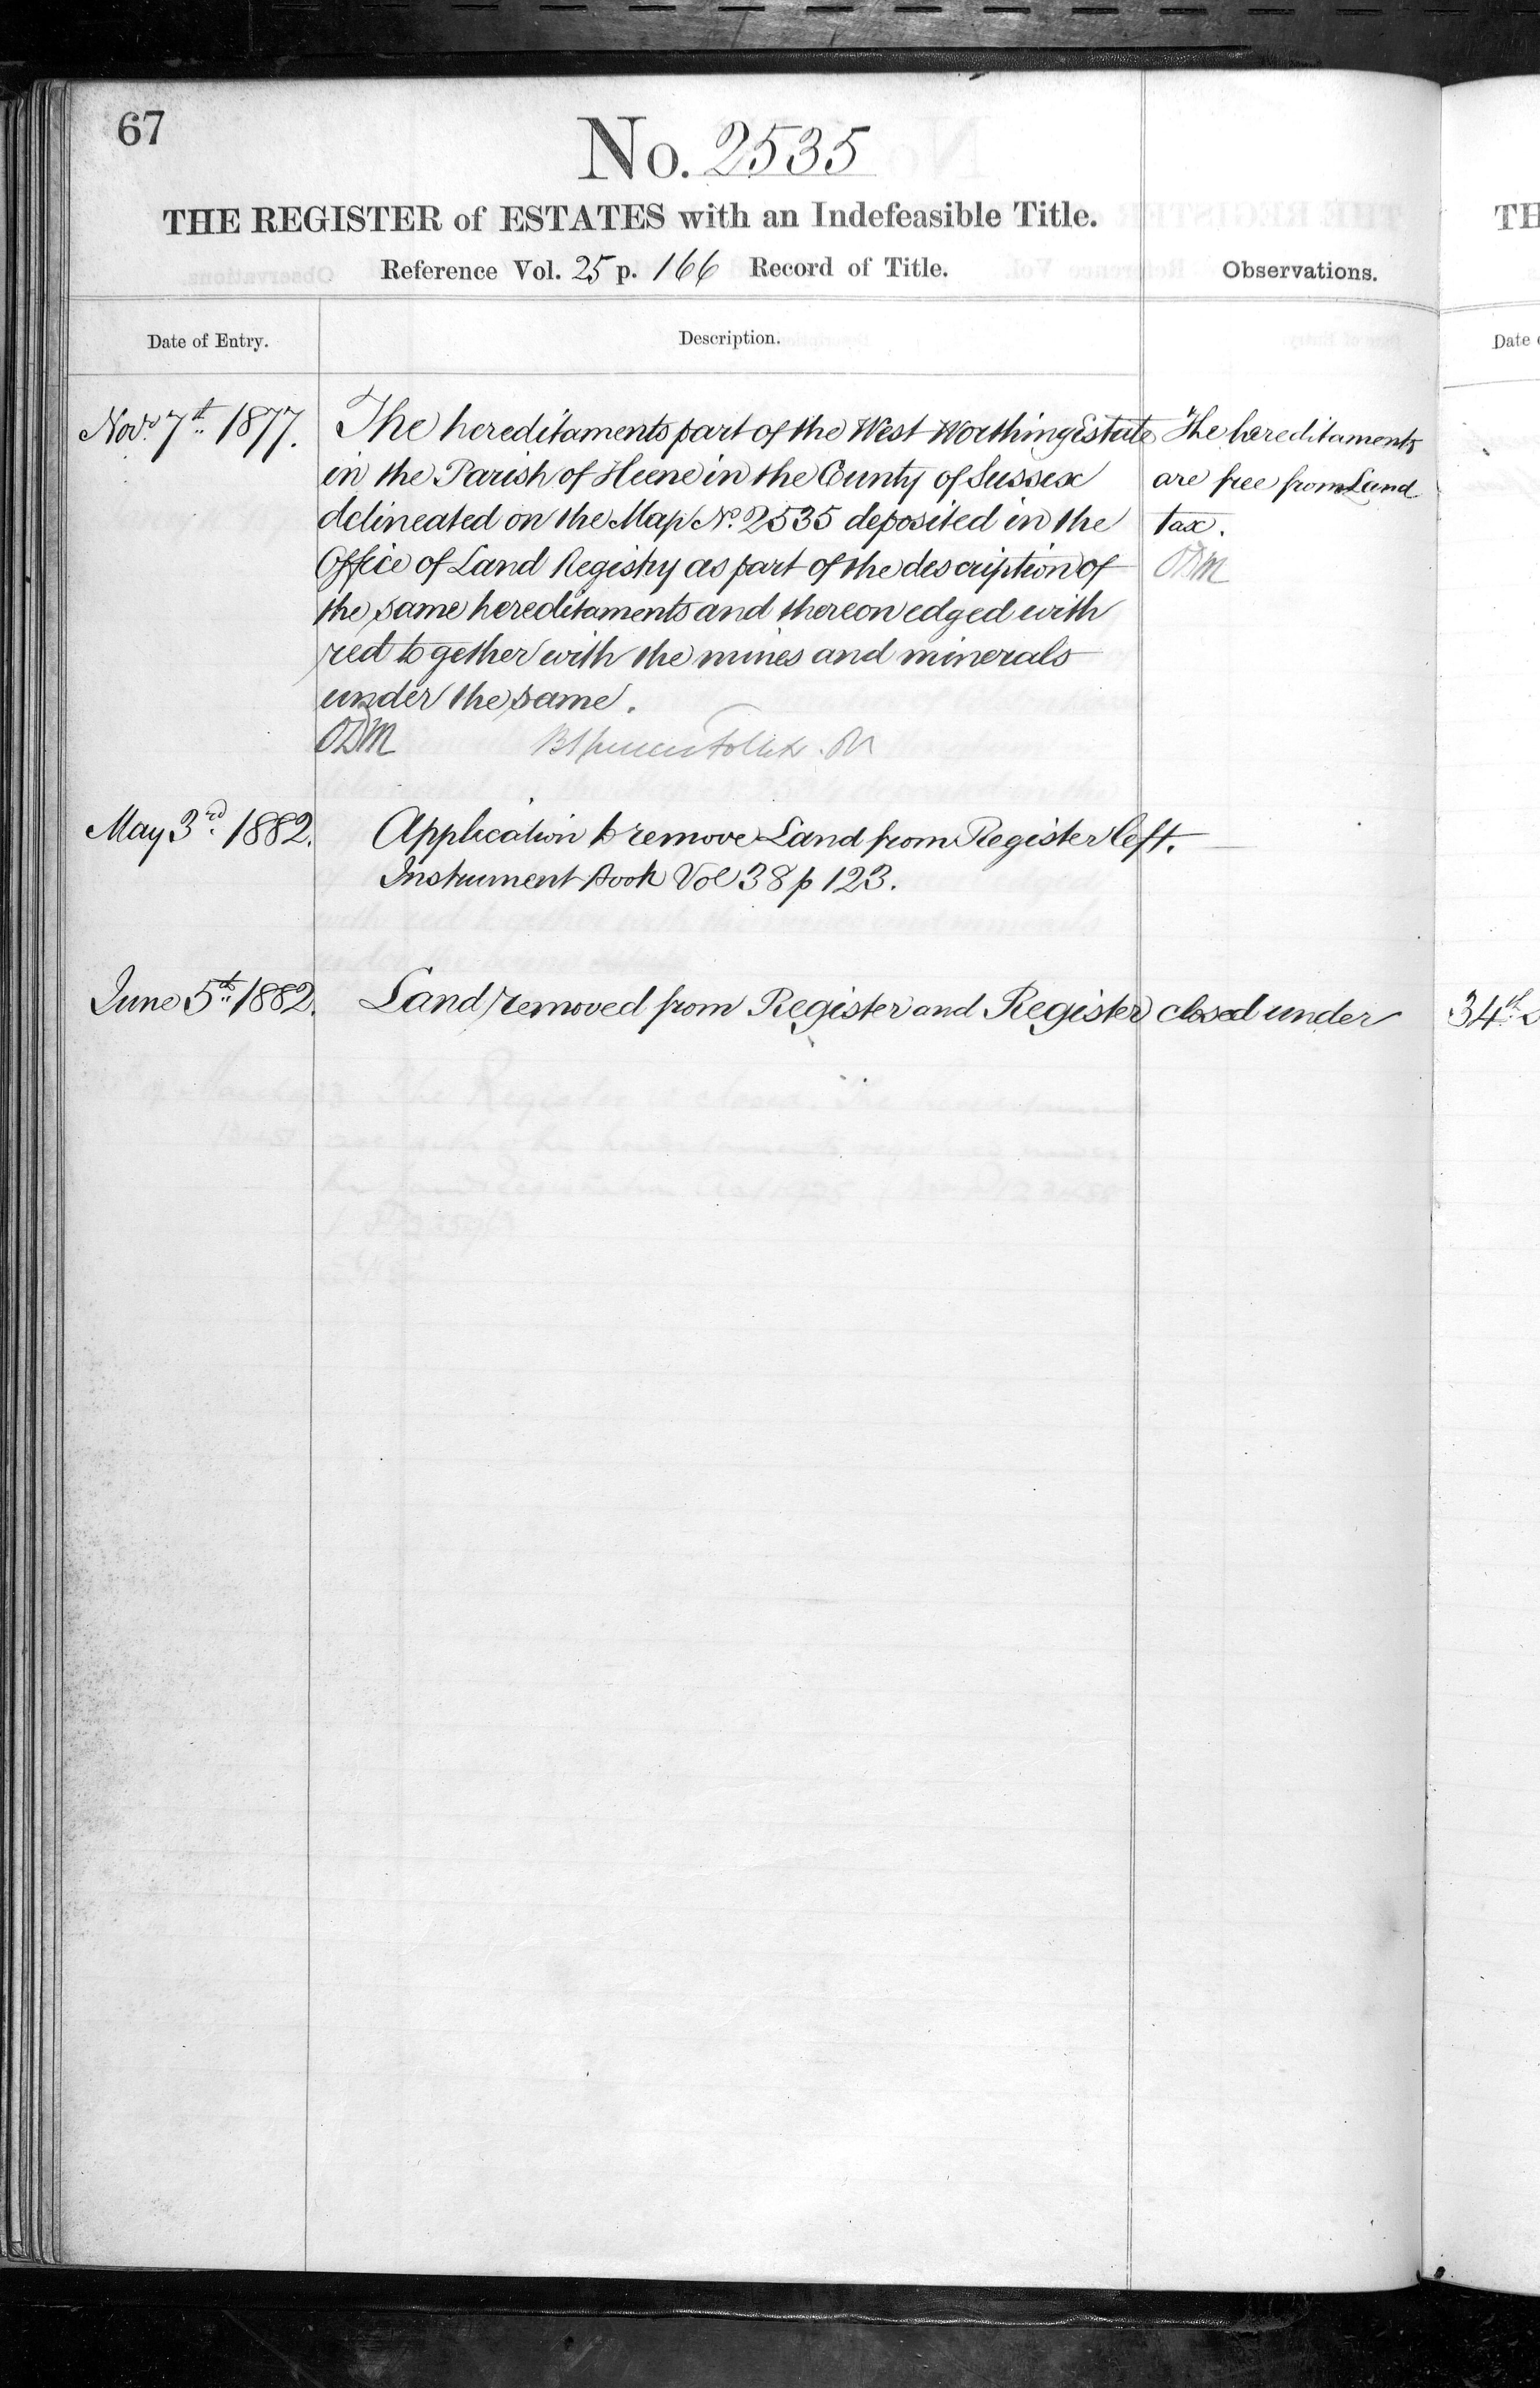 67
No. 2535
THE REGISTER of ESTATES with an Indefeasible Title.
Reference Vol. 25 p. 166 Record of Title.
Observations.
Date of Entry.
Description.
Novr. 7th 1877.
The hereditaments part of the West Worthing Estate
in the Parish of Heene in the County of Sussex
delineated on the Map No. 2535 deposited in the
Office of Land Registry as part of the description of
the same hereditaments and thereon edged with
red together with the mines and minerals
under the same.
ODM
The hereditaments
are free from Land
tax.
ODM
May 3rd. 1882.
Application to remove Land from Register left.
Instrument Book Vol 38 p 123.
June 5th. 1882.
Land removed from Register and Register closed under
34th
TH
Date